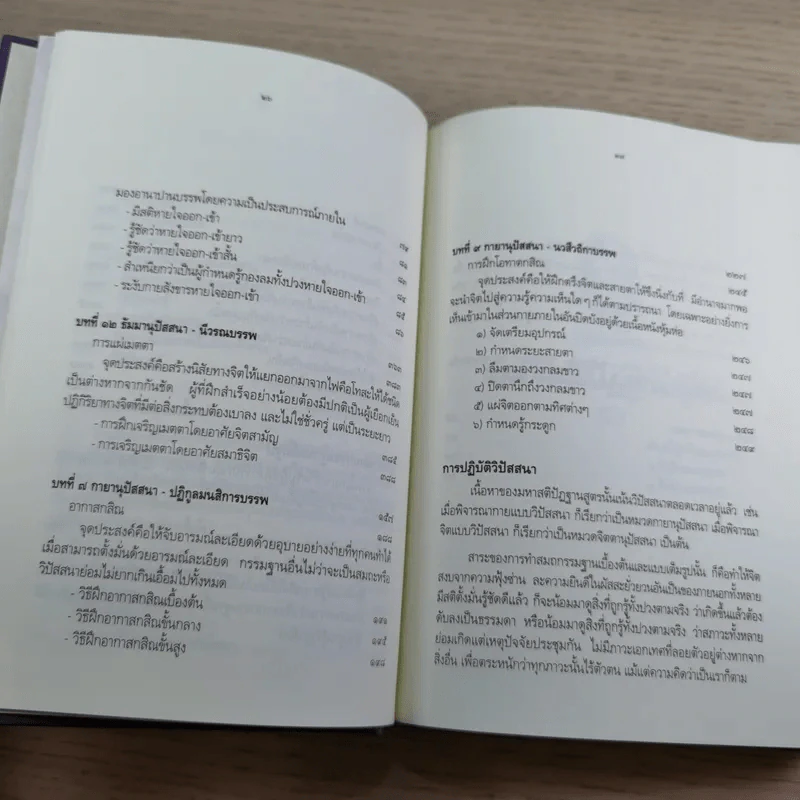 ๒๖
มองอานาปานบรรพโดยความเป็นประสบการณ์ภายใน
- มีสติหายใจออก-เข้า ๗๙
- รู้ชัดว่าหายใจออก-เข้ายาว ๘๑
- รู้ชัดว่าหายใจออก-เข้าสั้น ๘๒
- สำเหนียกว่าเป็นผู้กำหนดรู้กองลมทั้งปวงหายใจออก-เข้า ๘๔
- ระงับกายสังขารหายใจออก-เข้า ๘๕
๘๖
บทที่ ๑๒ ธัมมานุปัสสนา - นีวรณบรรพ
การแผ่เมตตา ๓๖๓
จุดประสงค์คือสร้างนิสัยทางจิตให้แยกออกมาจากไฟคือโทสะให้ได้สนิท ๓๘๓
เป็นต่างหากจากกันชัด ผู้ที่ฝึกสำเร็จอย่างน้อยต้องมีปกติเป็นผู้เยือกเย็น
ปฏิกิริยาทางจิตที่มีต่อสิ่งกระทบต้องเบาลง และไม่ใช่ชั่วครู่ แต่เป็นระยะยาว
- การฝึกเจริญเมตตาโดยอาศัยจิตสามัญ
- การเจริญเมตตาโดยอาศัยสมาธิจิต ๓๘๕
๓๘๘
บทที่ ๗ กายานุปัสสนา - ปฏิกูลมนสิการบรรพ
อากาสกสิณ ๑๕๗
จุดประสงค์คือให้จับอารมณ์ละเอียดด้วยอุบายอย่างง่ายที่ทุกคนทำได้ ๑๘๘
เมื่อสามารถตั้งมั่นด้วยอารมณ์ละเอียด กรรมฐานอื่นไม่ว่าจะเป็นสมถะหรือ
วิปัสสนาย่อมไม่ยากเกินเอื้อมไปทั้งหมด
- วิธีฝึกอากาสกสิณเบื้องต้น
- วิธีฝึกอากาสกสิณขั้นกลาง ๑๙๑
- วิธีฝึกอากาสกสิณขั้นสูง ๑๙๕
๑๙๘
บทที่ ๙ กายานุปัสสนา - นวสีวถิกาบรรพ
การฝึกโอทาตกสิณ ๒๒๗
จุดประสงค์คือให้ฝึกตรึงจิตและสายตาให้ซึ้งนิ่งกับที่ มีอำนาจมากพอ ๒๔๕
จะนำจิตไปสู่ความรู้ความเห็นใด ๆ ก็ได้ตามปรารถนา โดยเฉพาะอย่างยิ่งการ
เห็นเข้ามาในส่วนกายภายในอันปิดบังอยู่ด้วยเนื้อหนังหุ้มห่อ
๑) จัดเตรียมอุปกรณ์
๒) กำหนดระยะสายตา ๒๔๖
๓) ลืมตามองวงกลมขาว ๒๔๗
๔) ปิดตานึกถึงวงกลมขาว ๒๔๗
๕) แผ่จิตออกตามทิศต่างๆ ๒๔๗
๖) กำหนดรู้กระดูก ๒๔๘
๒๔๙
การปฏิบัติวิปัสสนา
เนื้อหาของมหาสติปัฏฐานสูตรนั้นเน้นวิปัสสนาตลอดเวลาอยู่แล้ว เช่น
เมื่อพิจารณากายแบบวิปัสสนา ก็เรียกว่าเป็นหมวดกายานุปัสสนา เมื่อพิจารณา
จิตแบบวิปัสสนา ก็เรียกว่าเป็นหมวดจิตตานุปัสสนา เป็นต้น
สาระของการทำสมถกรรมฐานเบื้องต้นและแบบเต็มรูปนั้น ก็คือทำให้จิต
สงบจากความฟุ้งซ่าน ละความยินดีในผัสสะยั่วยวนอันเป็นของภายนอกทั้งหลาย
มีสติตั้งมั่นรู้ชัดดีแล้ว ก็จะน้อมมาดูสิ่งที่ถูกรู้ทั้งปวงตามจริง ว่าเกิดขึ้นแล้วต้อง
ดับลงเป็นธรรมดา หรือน้อมมาดูสิ่งที่ถูกรู้ทั้งปวงตามจริง ว่าสภาวะทั้งหลาย
ย่อมเกิดแต่เหตุปัจจัยประชุมกัน ไม่มีภาวะเอกเทศที่ลอยตัวอยู่ต่างหากจาก
สิ่งอื่น เพื่อตระหนักว่าทุกภาวะนั้นไร้ตัวตน แม้แต่ความคิดว่าเป็นเราก็ตาม